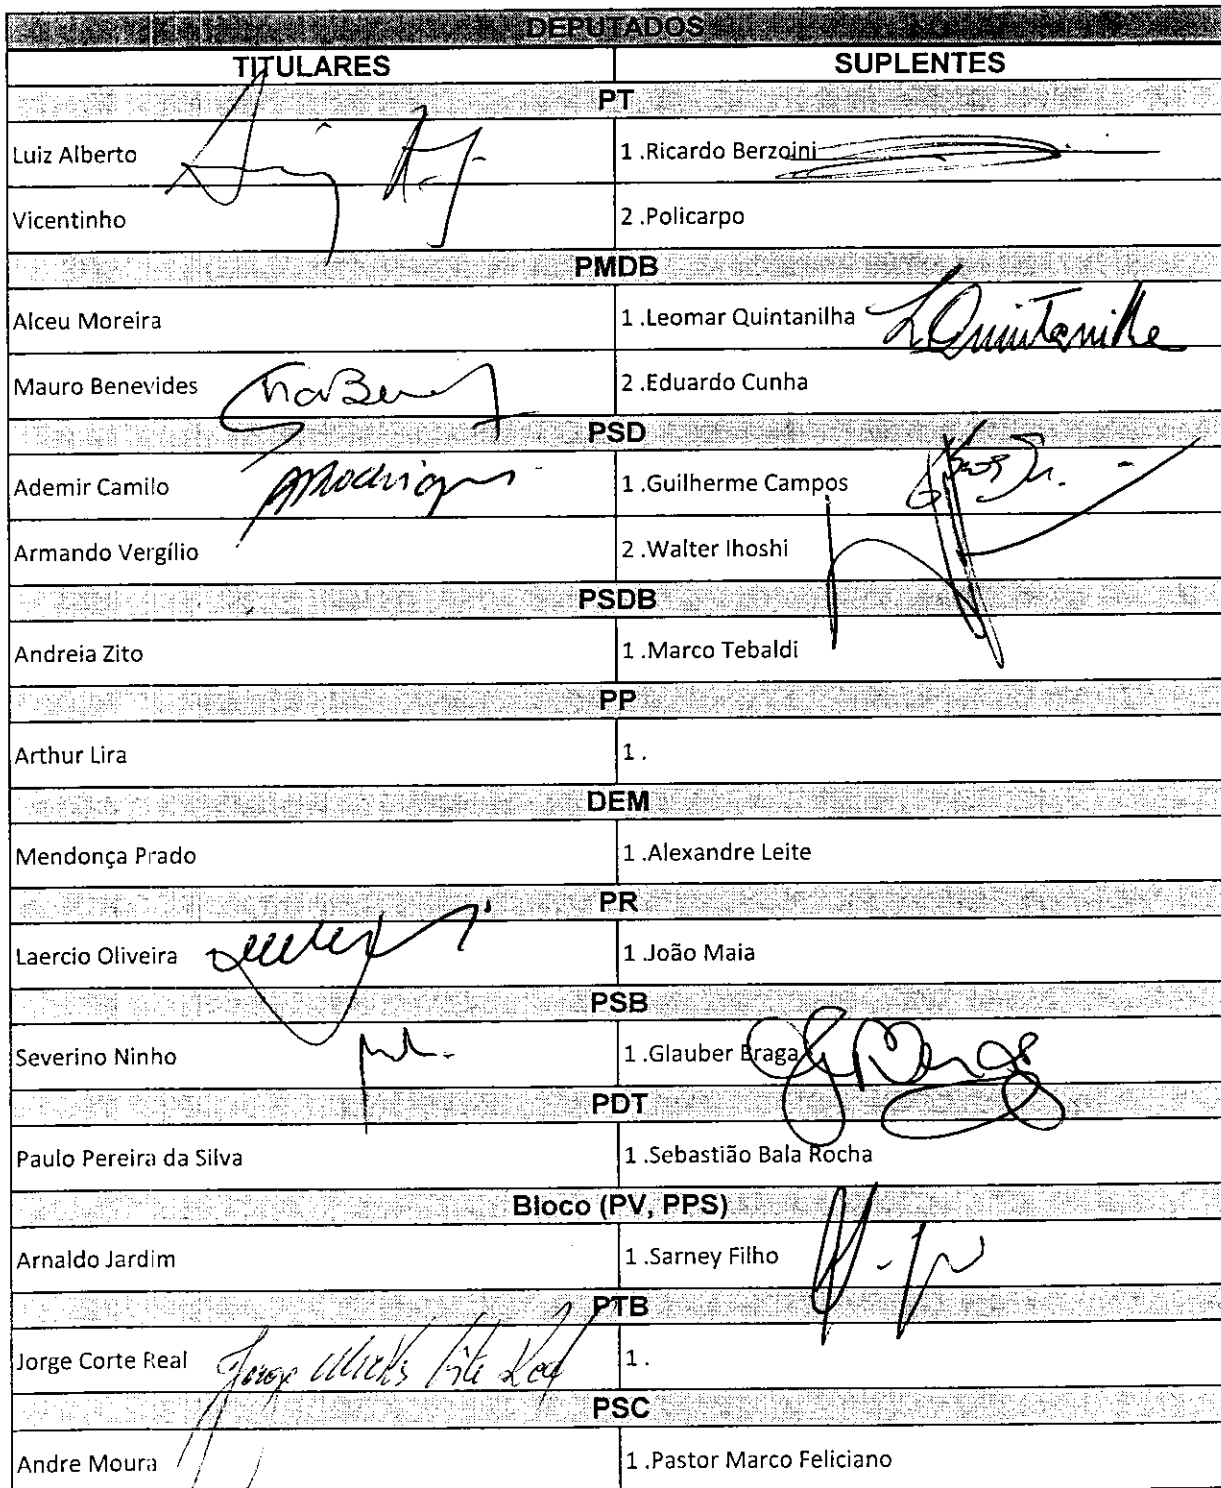 DEPUTADOS
TITULARES SUPLENTES
PT
Luiz Alberto 1 .Ricardo Berzoini
Vicentinho 2 .Policarpo
PMDB
Alceu Moreira 1 .Leomar Quintanilha LQuintanilha
Mauro Benevides 2 .Eduardo Cunha
PSD
Ademir Camilo 1 .Guilherme Campos
Armando Vergílio 2 .Walter Ihoshi
PSDB
Andreia Zito 1 .Marco Tebaldi
PP
Arthur Lira 1 .
DEM
Mendonça Prado 1 .Alexandre Leite
PR
Laercio Oliveira 1 .João Maia
PSB
Severino Ninho 1 .Glauber Braga
PDT
Paulo Pereira da Silva 1 .Sebastião Bala Rocha
Bloco (PV, PPS)
Arnaldo Jardim 1 .Sarney Filho
PTB
Jorge Corte Real 1 .
PSC
Andre Moura 1 .Pastor Marco Feliciano